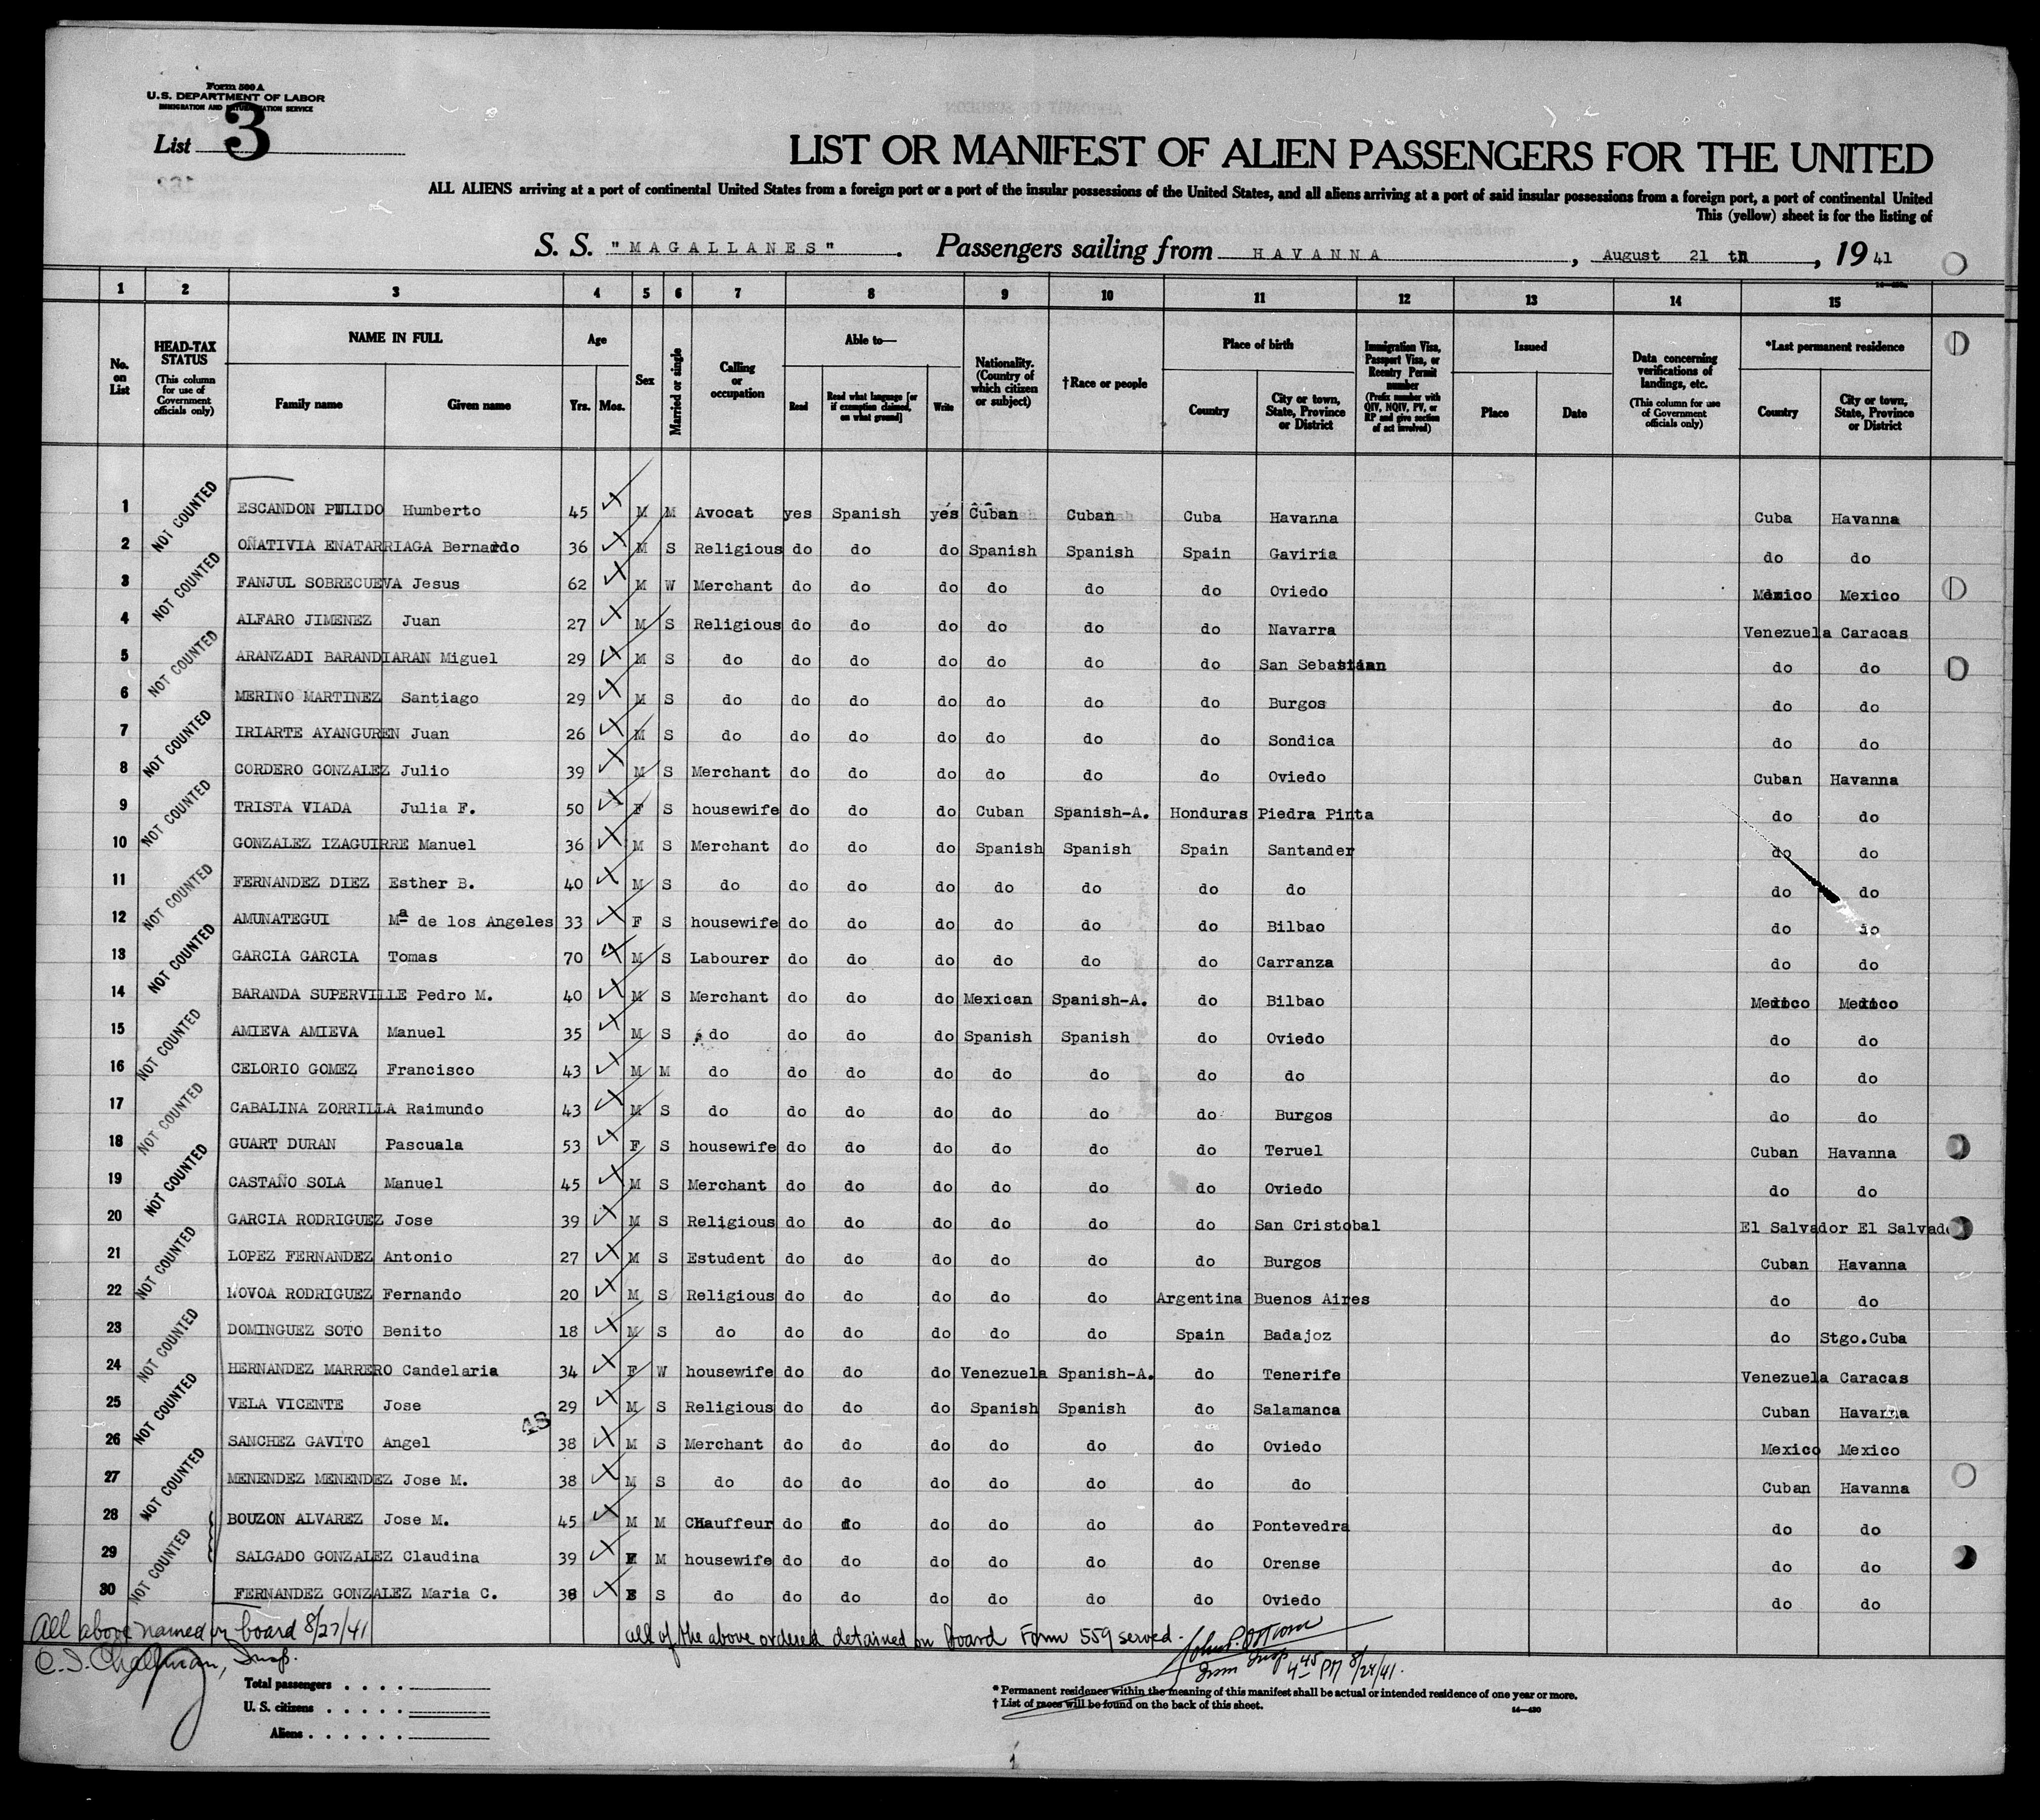 Form 500 A
U.S. DEPARTMENT OF LABOR
IMMIGRATION AND NATURALIZATION SERVICE
List 3
LIST OR MANIFEST OF ALIEN PASSENGERS FOR THE UNITED
ALL ALIENS arriving at a port of continental United States from a foreign port or a port of the insular possessions of the United States, and all aliens arriving at a port of said insular possessions from a foreign port, a port of continental United
This (yellow) sheet is for the listing of
S. S. "MAGALLANES". Passengers sailing from HAVANNA, August 21 th, 1941
1 2 3 4 5 6 7 8 9 10 11 12 13 14 15
No. on List
HEAD-TAX STATUS (This column for use of Government officials only)
NAME IN FULL Family name Given name
Age Yrs. Mos.
Sex
Married or single
Calling or occupation
Able to— Read Read what language [or if exemption claimed, on what ground] Write
Nationality. (Country of which citizen or subject)
†Race or people
Place of birth Country City or town, State, Province or District
Immigration Visa, Passport Visa, or Reentry Permit number (Prefix number with QIV, NQIV, PV, or RP and give section of act involved)
Issued Place Date
Data concerning verifications of landings, etc. (This column for use of Government officials only)
*Last permanent residence Country City or town, State, Province or District
NOT COUNTED
1 ESCANDON PULIDO Humberto 45 M M Avocat yes Spanish yes Cuban Cuban Cuba Havanna Cuba Havanna
2 OÑATIVIA ENATARRIAGA Bernardo 36 M S Religious do do do Spanish Spanish Spain Gaviria do do
NOT COUNTED
3 FANJUL SOBRECUEVA Jesus 62 M W Merchant do do do do do do Oviedo Mexico Mexico
4 ALFARO JIMENEZ Juan 27 M S Religious do do do do do do Navarra Venezuela Caracas
NOT COUNTED
5 ARANZADI BARANDIARAN Miguel 29 M S do do do do do do do San Sebastian do do
6 MERINO MARTINEZ Santiago 29 M S do do do do do do do Burgos do do
NOT COUNTED
7 IRIARTE AYANGUREN Juan 26 M S do do do do do do do Sondica do do
8 CORDERO GONZALEZ Julio 39 M S Merchant do do do do do do Oviedo Cuban Havanna
NOT COUNTED
9 TRISTA VIADA Julia F. 50 F S housewife do do do Cuban Spanish-A. Honduras Piedra Pinta do do
10 GONZALEZ IZAGUIRRE Manuel 36 M S Merchant do do do Spanish Spanish Spain Santander do do
NOT COUNTED
11 FERNANDEZ DIEZ Esther B. 40 M S do do do do do do do do do do
12 AMUNATEGUI Mª de los Angeles 33 F S housewife do do do do do do Bilbao do do
NOT COUNTED
13 GARCIA GARCIA Tomas 70 M S Labourer do do do do do do Carranza do do
14 BARANDA SUPERVILLE Pedro M. 40 M S Merchant do do do Mexican Spanish-A. do Bilbao Mexico Mexico
NOT COUNTED
15 AMIEVA AMIEVA Manuel 35 M S do do do do Spanish Spanish do Oviedo do do
16 CELORIO GOMEZ Francisco 43 M M do do do do do do do do do do
NOT COUNTED
17 CABALINA ZORRILLA Raimundo 43 M S do do do do do do do Burgos do do
18 GUART DURAN Pascuala 53 F S housewife do do do do do do Teruel Cuban Havanna
NOT COUNTED
19 CASTAÑO SOLA Manuel 45 M S Merchant do do do do do do Oviedo do do
20 GARCIA RODRIGUEZ Jose 39 M S Religious do do do do do do San Cristobal El Salvador El Salvado
NOT COUNTED
21 LOPEZ FERNANDEZ Antonio 27 M S Estudent do do do do do do Burgos Cuban Havanna
22 NOVOA RODRIGUEZ Fernando 20 M S Religious do do do do do Argentina Buenos Aires do do
NOT COUNTED
23 DOMINGUEZ SOTO Benito 18 M S do do do do do do Spain Badajoz do Stgo.Cuba
24 HERNANDEZ MARRERO Candelaria 34 F W housewife do do do Venezuela Spanish-A. do Tenerife Venezuela Caracas
NOT COUNTED
25 VELA VICENTE Jose 29 M S Religious do do do Spanish Spanish do Salamanca Cuban Havanna
48
26 SANCHEZ GAVITO Angel 38 M S Merchant do do do do do do Oviedo Mexico Mexico
NOT COUNTED
27 MENENDEZ MENENDEZ Jose M. 38 M S do do do do do do do do Cuban Havanna
28 BOUZON ALVAREZ Jose M. 45 M M Chauffeur do do do do do do Pontevedra do do
NOT COUNTED
29 SALGADO GONZALEZ Claudina 39 F M housewife do do do do do do Orense do do
30 FERNANDEZ GONZALEZ Maria C. 38 F S do do do do do do do Oviedo do do
All above named on board 8/27/41
all of the above ordered detained on board Form 559 served.
Insp.
Imm Insp 4 45 PM 8/24/41.
Total passengers
U. S. citizens
Aliens
* Permanent residence within the meaning of this manifest shall be actual or intended residence of one year or more.
† List of races will be found on the back of this sheet.